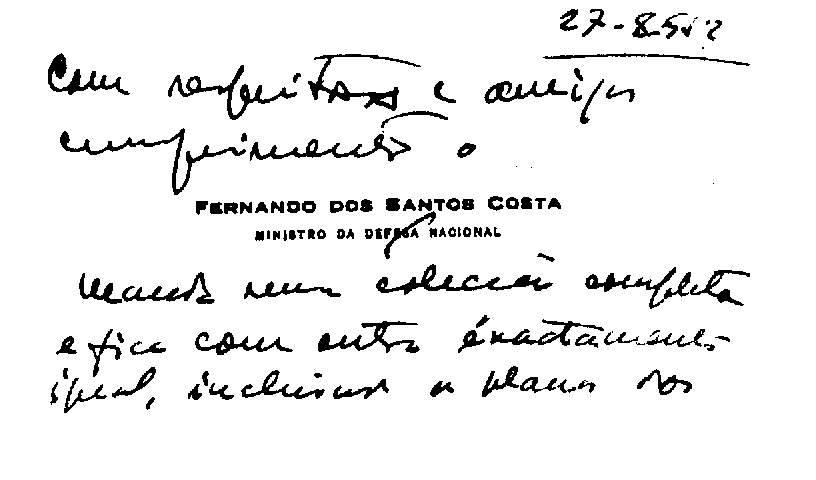 27-8-52
Com respeitosos e amigos
cumprimentos o
FERNANDO DOS SANTOS COSTA
MINISTRO DA DEFESA NACIONAL
manda uma colecção completa
e fica com outra exactamente
igual, inclusivé o plano dos